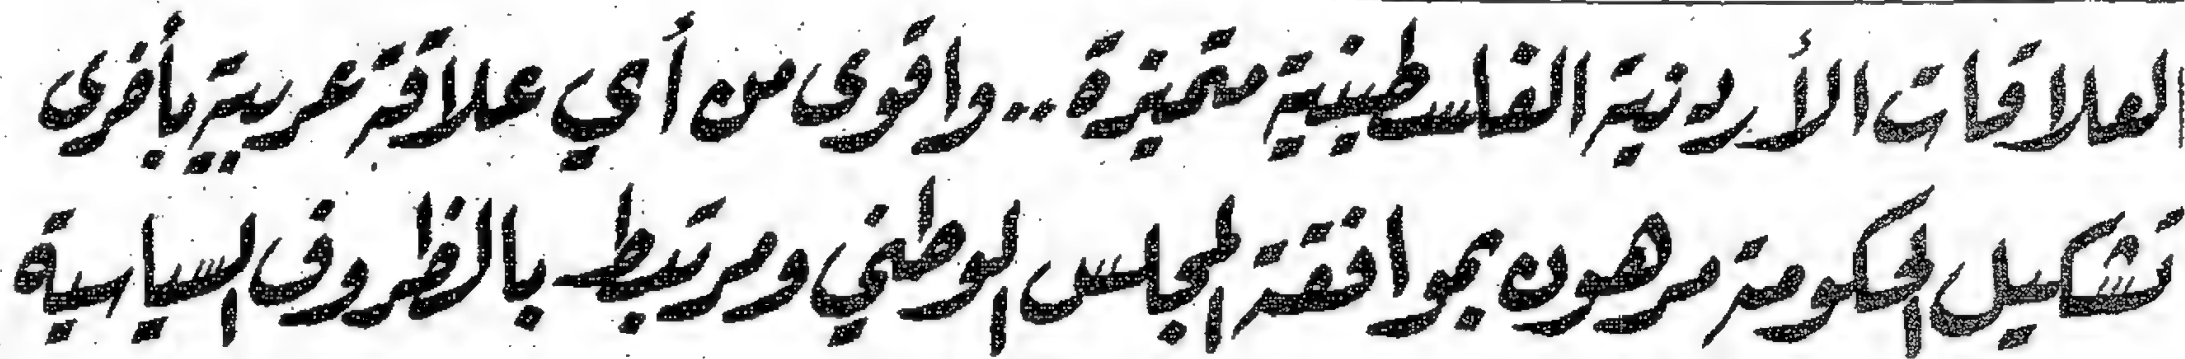 العلاقات الأردنية الفلسطينية متميزة .. واقوى من أي علاقة عربية بأخرى
تشكيل الحكومة مرهون بموافقة المجلس الوطني ومرتبط بالظروف السياسية